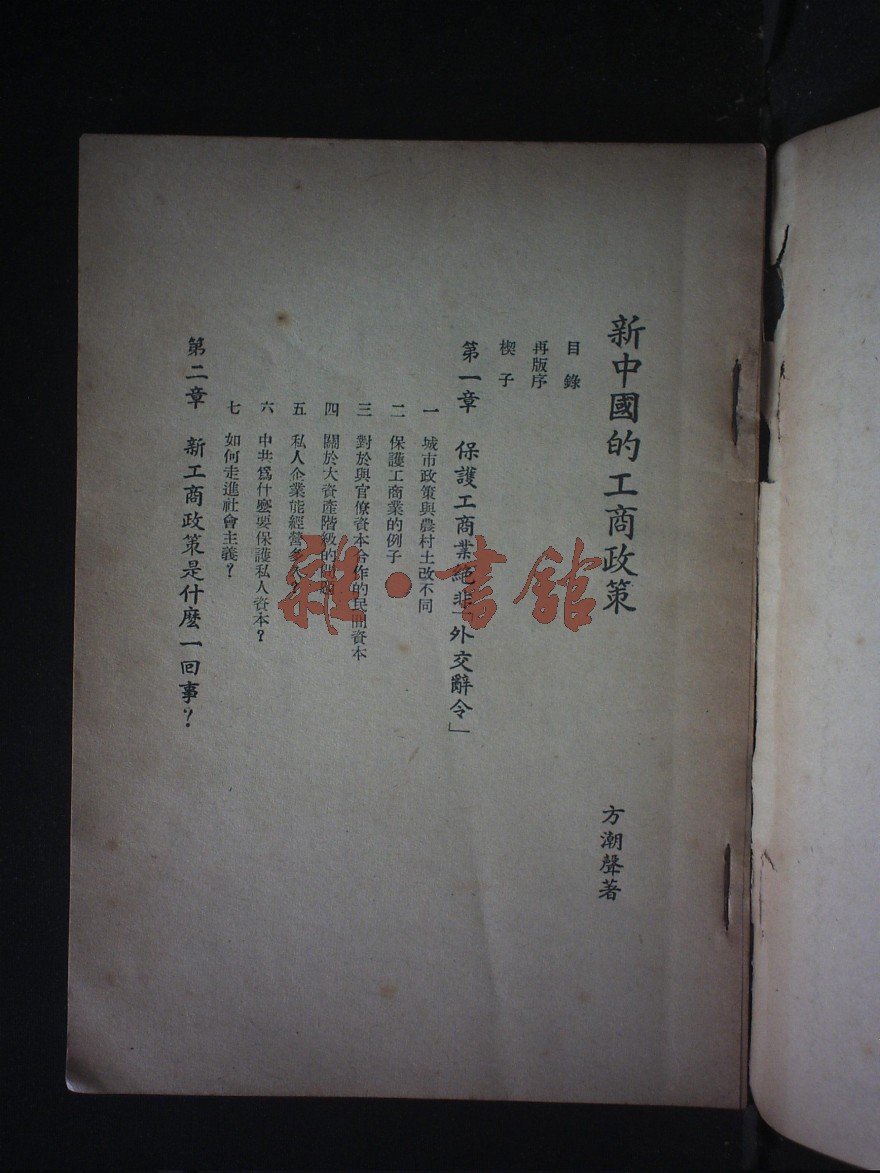 新中國的工商政策
方潮聲著
目錄
再版序
楔子
第一章 保護工商業絕非「外交辭令」
一 城市政策與農村土改不同
二 保護工商業的例子
三 對於與官僚資本合作的民間資本
四 關於大資產階級的問題
五 私人企業能經營多久?
六 中共爲什麽要保護私人資本?
七 如何走進社會主義?
第二章 新工商政策是什麽一回事?
雜·書館